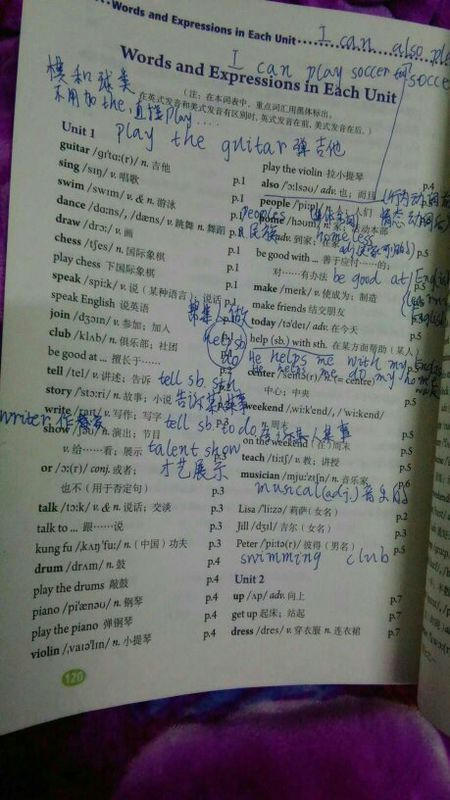 Words and Expressions in Each Unit
I can also
I can play soccer
Words and Expressions in Each Unit
棋和球类
不用加the.直接play...
(注：在本词表中，重点词汇用黑体标出。
在英式发音和美式发音有区别时，英式发音在前，美式发音在后。)
play the guitar 弹吉他
Unit 1
guitar /gɪ'tɑ:(r)/ n. 吉他 p.1
sing /sɪŋ/ v. 唱歌 p.1
swim /swɪm/ v. & n. 游泳 p.1
dance /dɑ:ns/, /dæns/ v. 跳舞 n. 舞蹈 p.1
draw /drɔ:/ v. 画 p.1
chess /tʃes/ n. 国际象棋 p.1
play chess 下国际象棋 p.1
speak /spi:k/ v. 说（某种语言）；说话
speak English 说英语
join /dʒɔɪn/ v. 参加；加入
club /klʌb/ n. 俱乐部；社团
be good at ... 擅长于……
tell /tel/ v. 讲述；告诉 tell sb. sth
story /'stɔ:ri/ n. 故事；小说 告诉某人某事
writer 作家
write /raɪt/ v. 写作；写字 tell sb. to do
show /ʃəʊ/ n. 演出；节目
v. 给……看；展示 talent show
才艺展示
or /ɔ:(r)/ conj. 或者；
也不（用于否定句） p.3
talk /tɔ:k/ v. & n. 说话；交谈 p.3
talk to ... 跟……说 p.3
kung fu /ˌkʌŋ 'fu:/ n.（中国）功夫 p.3
drum /drʌm/ n. 鼓 p.4
play the drums 敲鼓 p.4
piano /pi'ænəʊ/ n. 钢琴 p.4
play the piano 弹钢琴 p.4
violin /ˌvaɪə'lɪn/ n. 小提琴 p.4
play the violin 拉小提琴 p.4
also /'ɔ:lsəʊ/ adv. 也；而且
people /'pi:pl/ n. 人们
peoples
n. 民族
home /həʊm/ n. 家
adv. 到家；在家
homeless
be good with ... 善于应付……的；
对……有办法 be good at English
make /meɪk/ v. 使成为；制造
make friends 结交朋友
today /tə'deɪ/ adv. 在今天
帮某人做
help sb
help (sb.) with sth. 在某方面帮助（某人）
do He helps me with my English
He helps me do my home
center /'sentə(r)/ (= centre)
中心；中央 p.5
weekend /ˌwi:k'end/, /'wi:kend/
n. 周末 p.5
on the weekend（在）周末 p.5
teach /ti:tʃ/ v. 教；讲授 p.5
musician /mju:'zɪʃn/ n. 音乐家 p.6
musical (adj.) 音乐的
Lisa /'li:zə/ 莉萨（女名） p.2
Jill /dʒɪl/ 吉尔（女名） p.5
Peter /'pi:tə(r)/ 彼得（男名） p.5
swimming club
Unit 2
up /ʌp/ adv. 向上 p.7
get up 起床；站起 p.7
dress /dres/ v. 穿衣服 n. 连衣裙 p.7
120